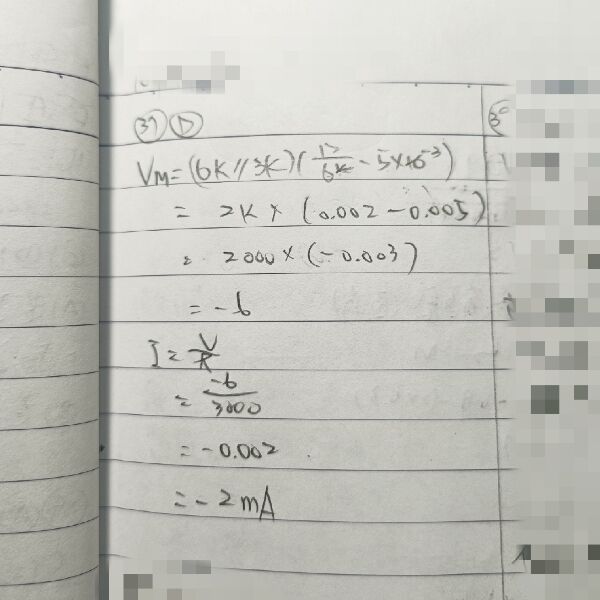 37 D
V_M = (6K // 3K) (12/6K - 5×10^-3)
= 2K × (0.002 - 0.005)
= 2000 × (-0.003)
= -6
I = V/R
= -6/3000
= -0.002
= -2mA